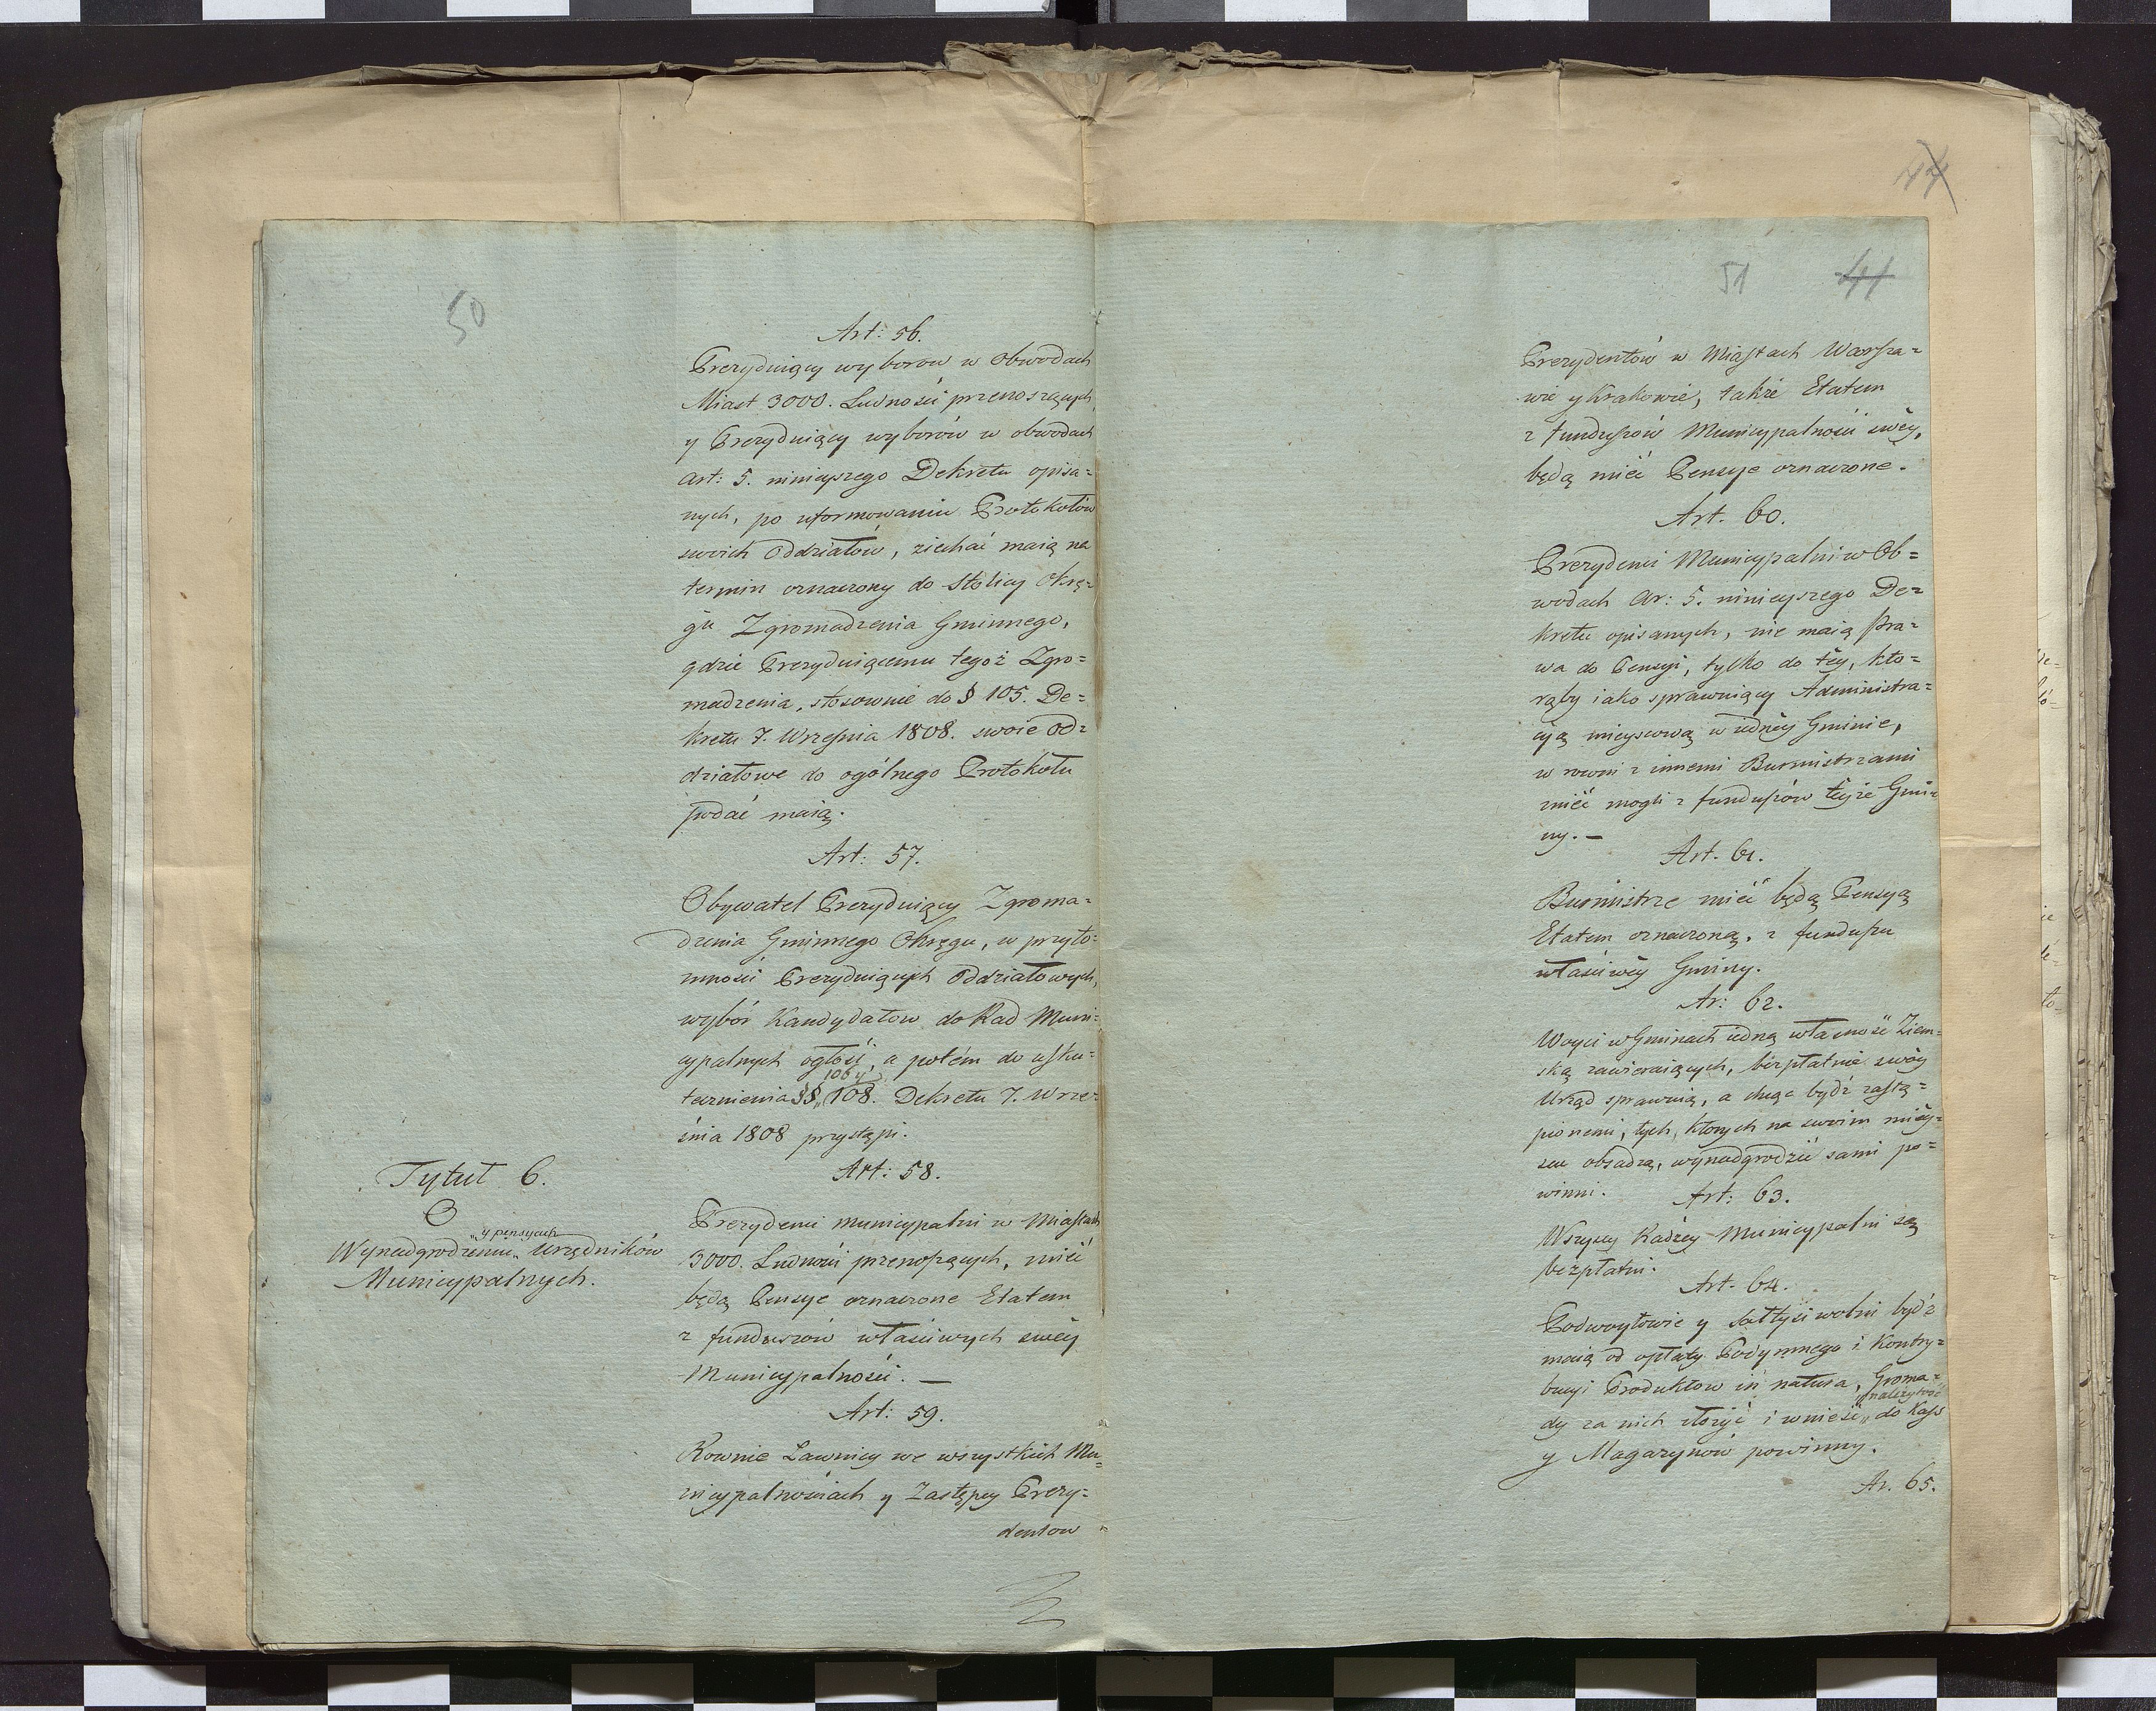 50
Art: 56.
Prezyduiący wyborow w Obwodach
Miast 3000. Ludności przenoszących,
y Prezyduiący wyborów w obwodach
art: 5. ninieyszego Dekretu opisa=
nych, po uformowaniu Protokołów
swoich Oddziałów, ziechać maią na
termin oznaczony do Stolicy Okrę=
gu Zgromadzenia Gminnego,
gdzie Prezyduiącemu tegoż Zgro=
madzenia, stosownie do § 105. De=
kretu 7. Września 1808. swoie Od=
działowe do ogólnego Protokołu
podać maią.
Art: 57.
Obywatel Prezyduiący Zgroma=
dzenia Gminnego Okręgu, w przyto=
mności Prezyduiących Oddziałowych,
wybór Kandydatow do Rad Muni=
cypalnych ogłosi, a potém do usku=
106 y
tecznienia §§ „ 108. Dekretu 7. Wrze=
śnia 1808 przystąpi.
Art: 58.
Prezydenci municypalni w Miastach
3000. Ludności przenoszących, mieć
będą Pensye oznaczone Etatem
z funduszów właściwych swéy
Municypalności. —
Art: 59.
Rownie Ławnicy we wszystkich Mu=
nicypalnościach y Zastępcy Prezy=
dentow
Tytuł 6.
O
„y pensyach
Wynadgrodzeniu „ Urzędników
Municypalnych.
44
51 41
Prezydentów w Miastach Warsza=
wie y Krakowie, także Etatem
z funduszów Municypalności swéy,
będą mieć Pensye oznaczone.
Art. 60.
Prezydenci Municypalni w Ob=
wodach Ar: 5. ninieyszego De=
kretu opisanych, nie maią Pra=
wa do Pensyi, tylko do téy, kto=
rąby iako sprawuiący Administra=
cyą mieyscową w iednéy Gminie,
w rowni z innemi Burmistrzami
mieć mogli z funduszów téyże Gmi=
ny. —
Art. 61.
Burmistrze mieć będą Pensyą
Etatem oznaczoną, z funduszu
właściwéy Gminy.
Ar: 62.
Woyci w Gminach iedną własność Ziem=
ską zawieraiących, bezpłatnie swóy
Urząd sprawuią, a chcąc bydź zastą=
pionemi, tych, ktorych na swoim miéy=
scu obsadzą, wynadgrodzić sami po=
winni.
Art: 63.
Wszyscy Radzcy Municypalni są
bezpłatni.
Art. 64.
Podwoytowie y Sołtysi wolni bydź
maią od opłaty Podymnego i Kontry=
bucyi Produktow in natura, Groma=
„należytość
dy za nich złożyć i wnieść „ do Kass
y Magazynów powinny.
Ar. 65.